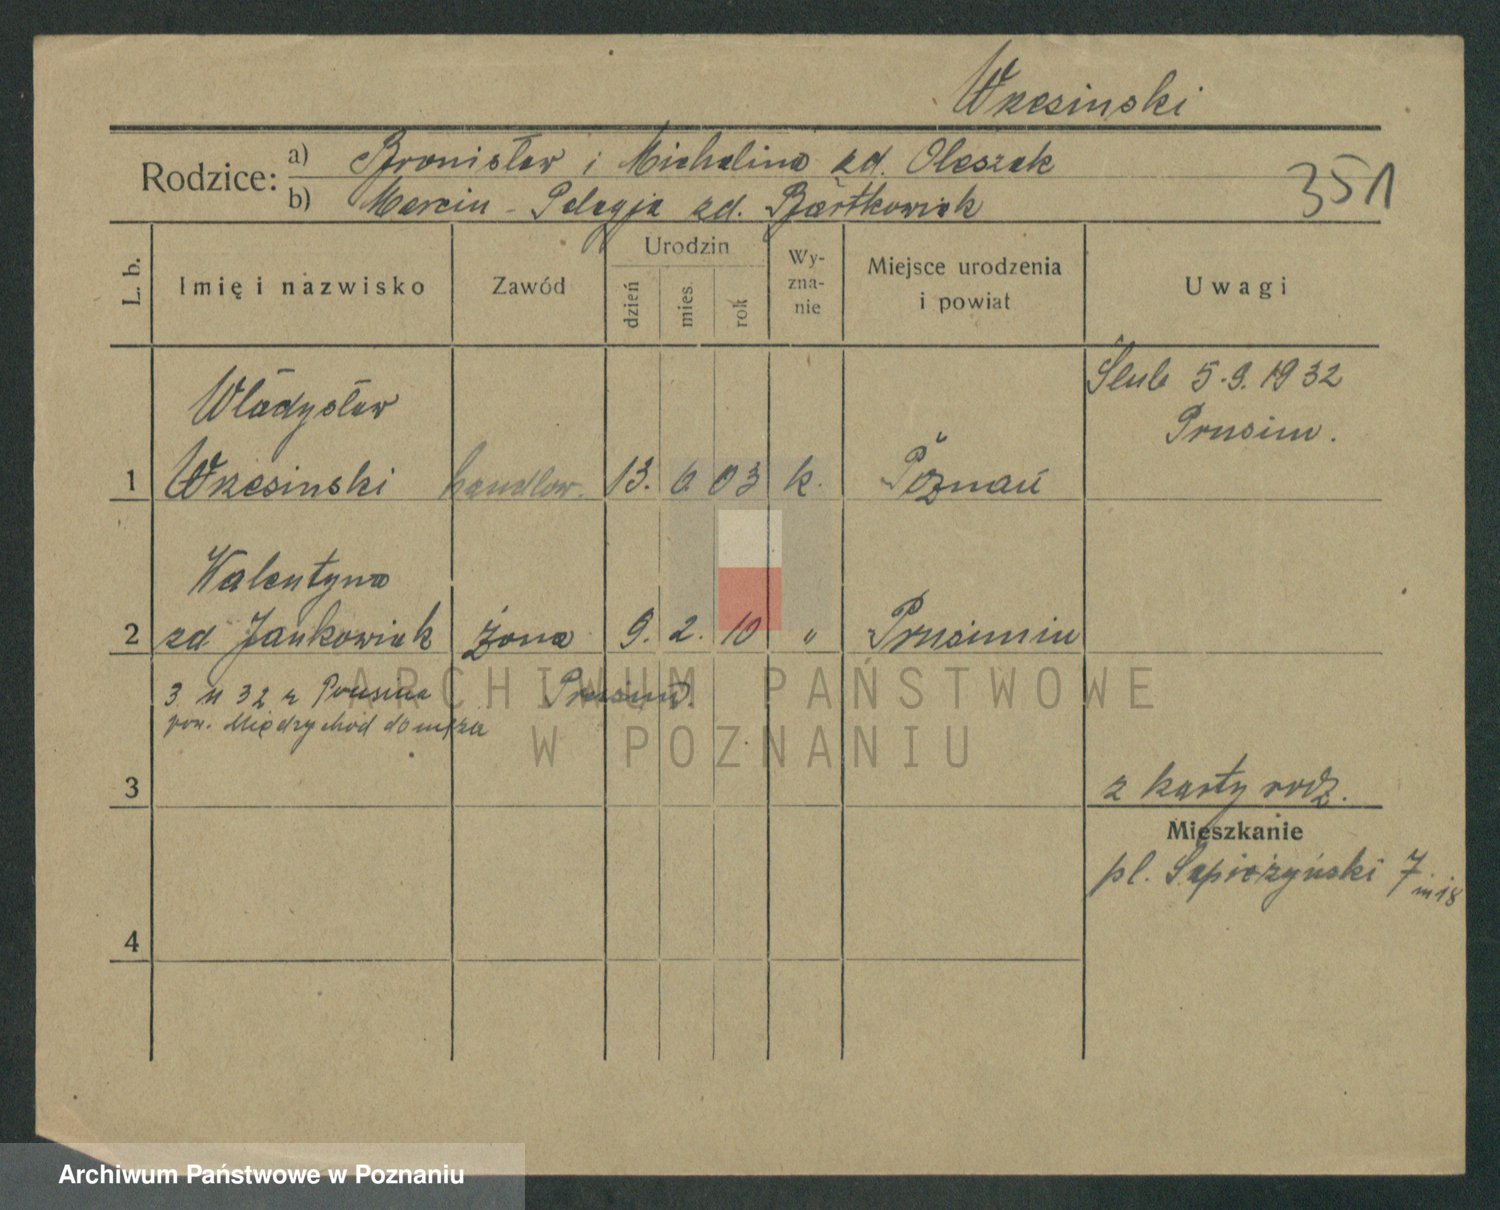 Wrzesinski
Rodzice: a) Bronisław i Michalina zd. Oleszak
b) Marcin - Pelagja zd. Bartkowiak
351
L. b. Imię i nazwisko Zawód Urodzin dzień mies. rok Wy-zna-nie Miejsce urodzenia i powiat Uwagi
Ślub 5.9.1932
Prusim.
Władysław
1 Wrzesinski handlow. 13. 6 03 k. Poznań
Walentyna
2 zd Jankowiak żona 9. 2. 10 " Prusimiu
3 11 32 z Prusima Prusim.
pow. Międzychód do męża
ARCHIWUM PAŃSTWOWE
W POZNANIU
3 z karty rodz.
Mieszkanie
pl. Sapieżyński 7 m 18
4
Archiwum Państwowe w Poznaniu